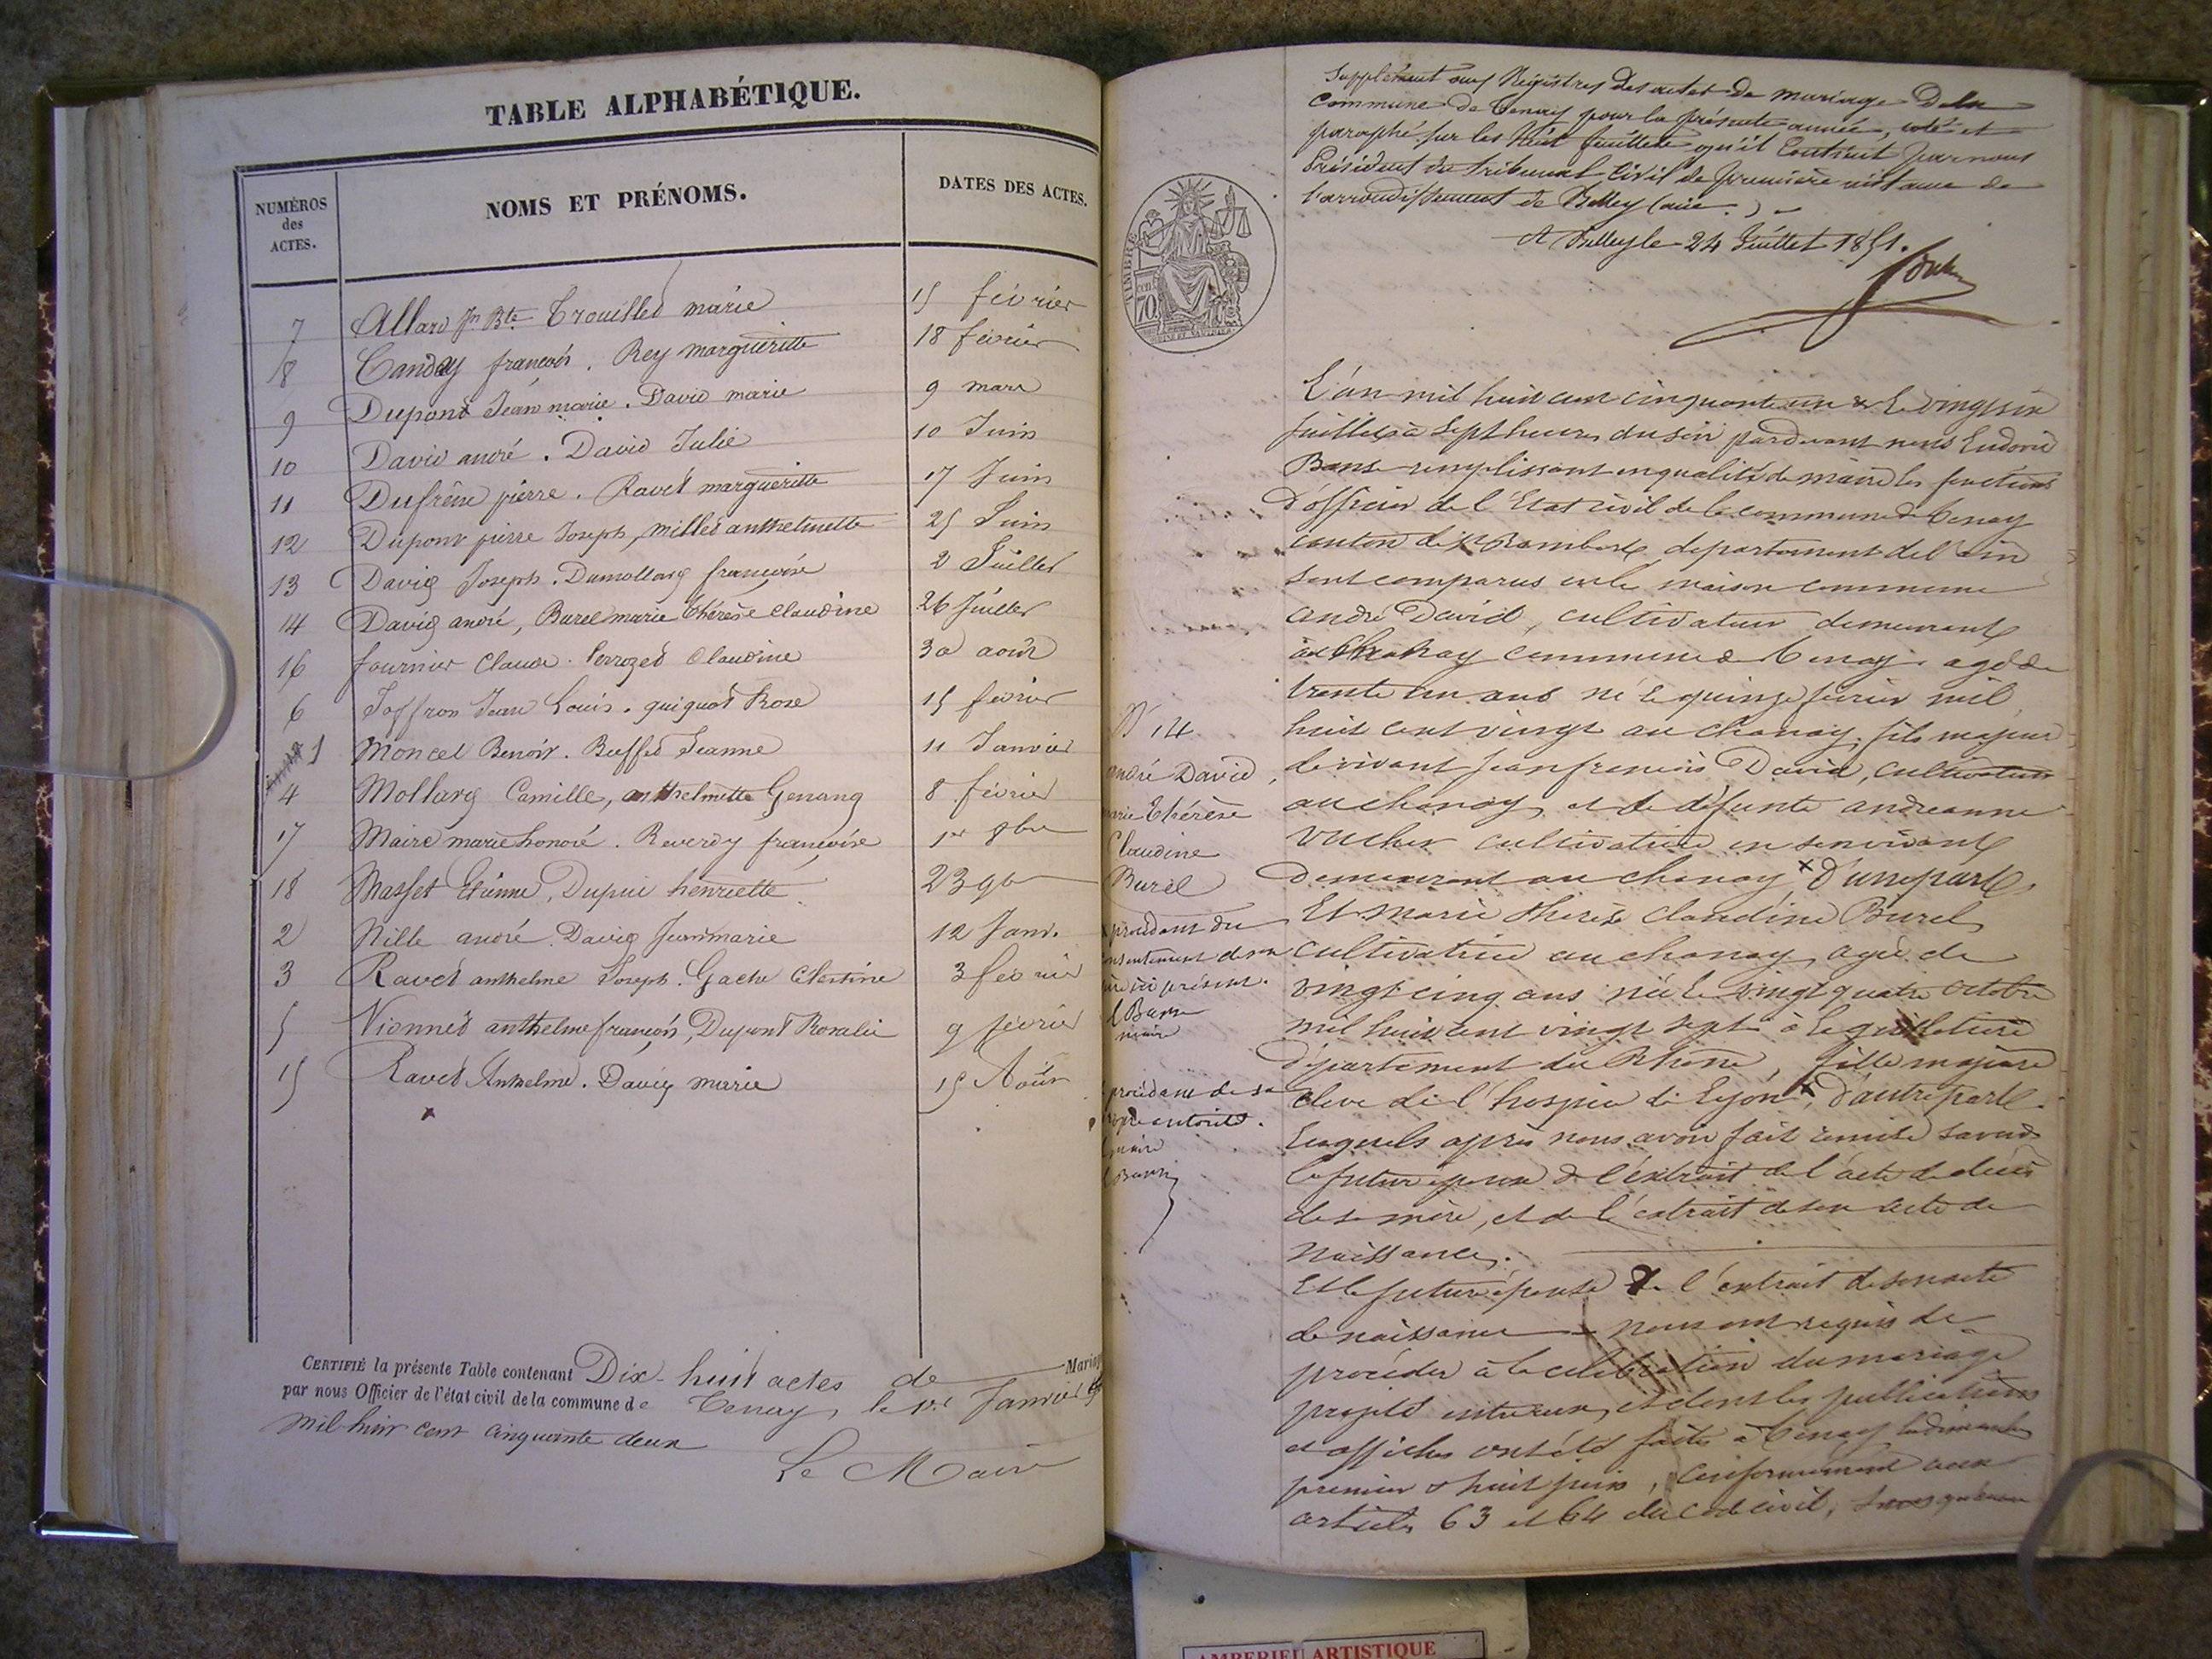 TABLE ALPHABÉTIQUE.
NUMÉROS des ACTES. NOMS ET PRÉNOMS. DATES DES ACTES.
7 Allard Jn Bte Trouilled marie 15 février
8 Tanday françois. Rey margueritte 18 février
9 Dupont Jean marie. David marie 9 mars
10 David andré. David Julie 10 Juin
11 Dufrêne pierre. Ravet margueritte 17 Juin
12 Dupont pierre Joseph, milled anthelmette 25 Juin
13 David Joseph. Dumollard françoise 2 Juillet
14 David andré, Burel marie thérèse Claudine 26 Juillet
16 fournier Claude. Perrozed Claudine 30 août
6 Joffron Jean Louis. guiguet Rose 15 février
1 Moncel Benoit. Buffed Jeanne 11 Janvier
4 Mollard Camille, anthelmette Genang 8 février
17 Maire marie honoré. Reverdy françoise 1er 8bre
18 Masset Etienne, Dupui henriette 23 9b
2 Nille andré. David Jeanmarie 12 Janv.
3 Ravet anthelme Joseph. Gache Célestine 3 février
5 Vionnet anthelme françois, Dupont Rosalie 9 février
15 Ravet Anthelme. David marie 15 Août
CERTIFIÉ la présente Table contenant Dix-huit actes de Maria
par nous Officier de l'état civil de la commune de Tenay, le 1er Janvier
mil huit cent cinquante deux
Le Maire
Supplément aux Régistres des actes de mariage De la
Commune de Tenay pour la présente année, coté et
paraphé sur les Huit feuillets qu'il Contient par nous
Président du tribunal Civil de première instance de
l'arrondissement de Belley (ain.)
A Belley le 24 Juillet 1851.
TIMBRE
70
L'an mil huit cent cinquante un & le vingt six
Juillet à Sept heures du soir pardevant nous Ludovic
remplissant en qualité de maire les fonctions
d'officier de l'Etat civil de la commune de Tenay
canton de St Rambert departement de l'ain
sont comparus en la maison commune
andré David, cultivateur demeurant
au Chanay commune de Tenay agé de
trente un ans né le quinze février mil
huit cent vingt au chanay, fils majeur
de vivant Jean françois David, cultivateur
au chanay et de défunte andréanne
Vucher cultivatrice en son vivant
demeurant au chanay x D'une part
Et Marie thérèse Claudine Burel
Cultivatrice au chanay, agée de
vingt cinq ans née le vingt quatre octobre
mil huit cent vingt sept à la guillotière
département du Rhône, fille majeure
élève de l'hospice de Lyon x, D'autre part.
Lesquels après nous avoir fait remise savoir
le futur époux de l'extrait de l'acte de décès
de sa mère, et de l'extrait de son acte de
Naissance.
Et la future épouse de l'extrait de son acte
de naissance nous ont requis de
procéder à la célébration du mariage
projeté entr'eux, et dont les publications
et affiches ont été faites à Tenay les dimanches
premier & huit juin, Conformément aux
articles 63 et 64 du Code civil,
N° 14
andré David,
marie thérèse
Claudine
Burel
procédant du
consentement de son
père ici présent.
maire
procédant de sa
propre autorité.
maire
AMBERIEU ARTISTIQUE